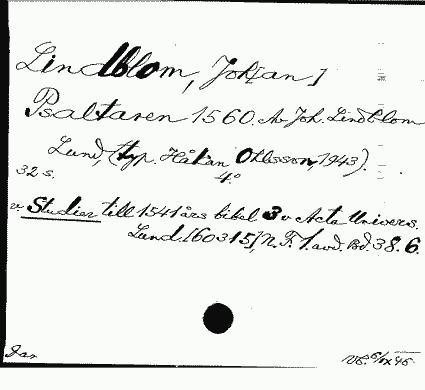 Lindblom, Joh[an]
Psaltaren 1560. Av Joh. Lindblom
Lund, (typ. Håkan Ohlsson, 1943).
32 s. 4:o
v. Studier till 1541 års bibel 3 v Acta Univers.
Lund. [60315], N. F. 1. avd. Bd. 38. 6.
Jan